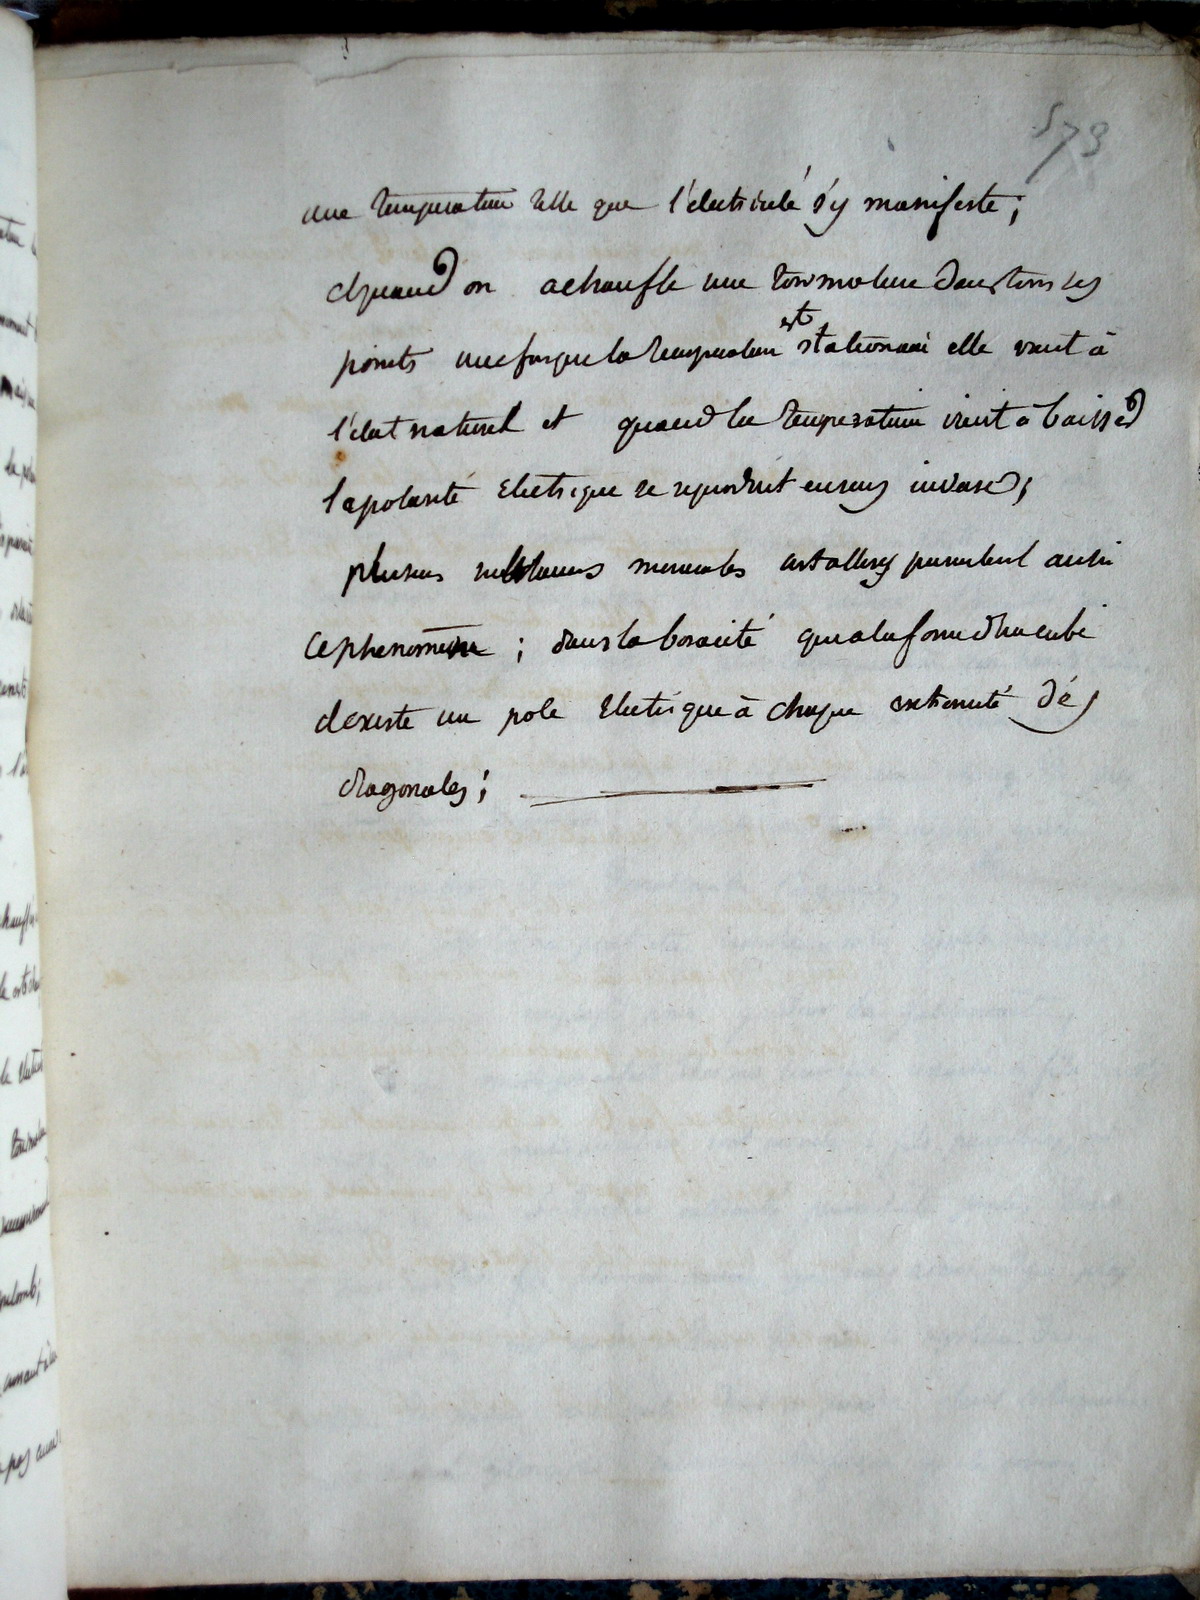 573
une temperature telle que l'électricité s'y manifeste;
quand on achauffe une tourmaline dans tous les
points une fois que la temperature est stationnaire elle vient à
l'état naturel et quand la temperature vient à baisser
la polarité Electrique se reproduit en sens inverse;
plusieurs substances minerales cristallisés presentent aussi
ce phenomène ; dans la boracité qui a la forme d'un cube
il existe un pole Electrique à chaque extremité des
diagonales;